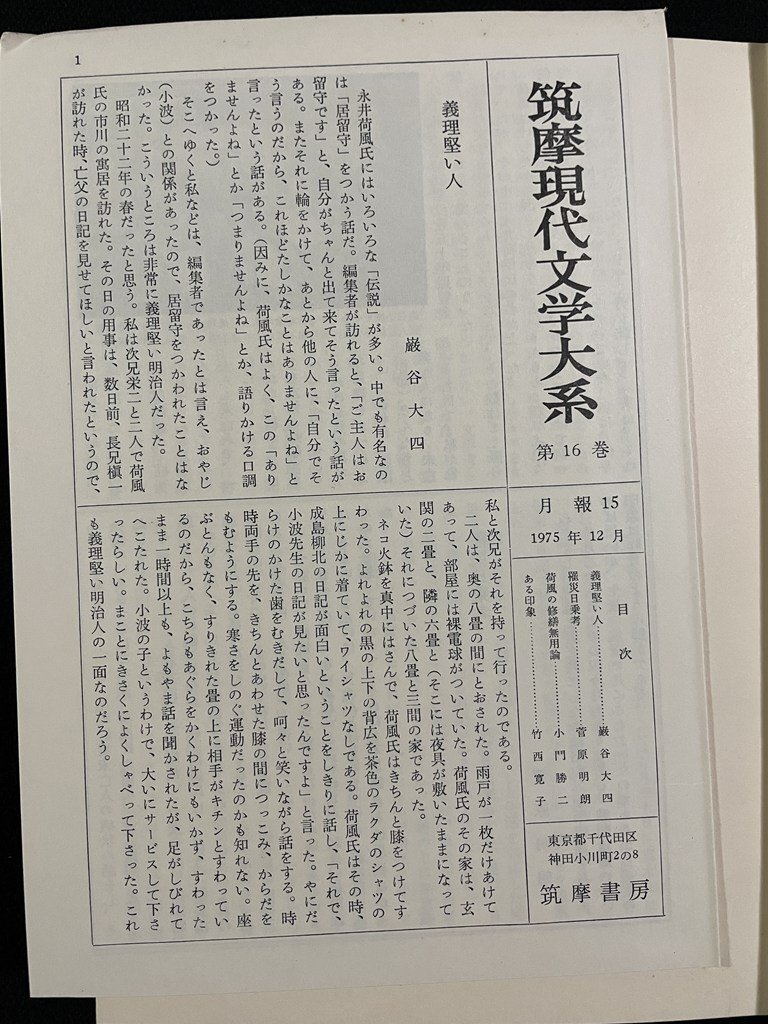 1
筑摩現代文学大系
第16巻
月報15
1975年12月
目次
義理堅い人…………巌谷大四
罹災日乗考…………菅原明朗
荷風の修繕無用論…………小門勝二
ある印象…………竹西寛子
東京都千代田区
神田小川町2の8
筑摩書房
義理堅い人
巌谷大四
永井荷風氏にはいろいろな「伝説」が多い。中でも有名なの
は「居留守」をつかう話だ。編集者が訪れると、「ご主人はお
留守です」と、自分がちゃんと出て来てそう言ったという話が
ある。またそれに輪をかけて、あとから他の人に、「自分でそ
う言うのだから、これほどたしかなことはありませんよね」と
言ったという話がある。(因みに、荷風氏はよく、この「あり
ませんよね」とか「つまりませんよね」とか、語りかける口調
をつかった。)
そこへゆくと私などは、編集者であったとは言え、おやじ
(小波)との関係があったので、居留守をつかわれたことはな
かった。こういうところは非常に義理堅い明治人だった。
昭和二十二年の春だったと思う。私は次兄栄二と二人で荷風
氏の市川の寓居を訪れた。その日の用事は、数日前、長兄槇一
が訪れた時、亡父の日記を見せてほしいと言われたというので、
私と次兄がそれを持って行ったのである。
二人は、奥の八畳の間にとおされた。雨戸が一枚だけあけて
あって、部屋には裸電球がついていた。荷風氏のその家は、玄
関の二畳と、隣の六畳と(そこには夜具が敷いたままになって
いた)それにつづいた八畳と三間の家であった。
ネコ火鉢を真中にはさんで、荷風氏はきちんと膝をつけてす
わった。よれよれの黒の上下の背広を茶色のラクダのシャツの
上にじかに着ていて、ワイシャツなしである。荷風氏はその時、
成島柳北の日記が面白いということをしきりに話し、「それで、
小波先生の日記が見たいと思ったんですよ」と言った。やにだ
らけのかけた歯をむきだして、呵々と笑いながら話をする。時
時両手の先を、きちんとあわせた膝の間につっこみ、からだを
もむようにする。寒さをしのぐ運動だったのかも知れない。座
ぶとんもなく、すりきれた畳の上に相手がキチンとすわってい
るのだから、こちらもあぐらをかくわけにもいかず、すわった
まま一時間以上も、よもやま話を聞かされたが、足がしびれて
へこたれた。小波の子というわけで、大いにサービスして下さ
ったらしい。まことにきさくによくしゃべって下さった。これ
も義理堅い明治人の一面なのだろう。